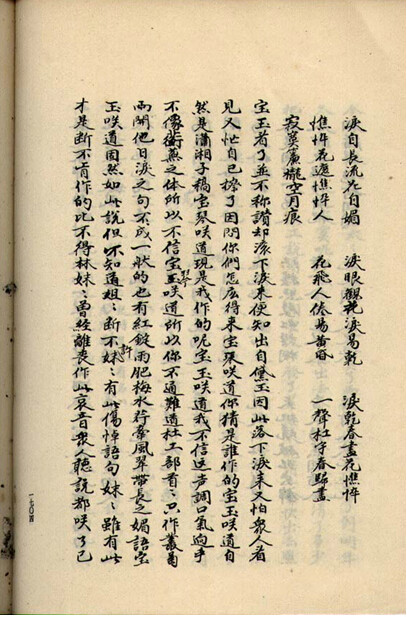 淚自長流花自媚　淚眼觀花淚易乾　淚乾春盡花憔悴
憔悴花遮憔悴人　花飛人倦易黃昏　一聲杜宇春歸盡
寂寞簾櫳空月痕
宝玉看了並不称讚却滚下淚來便知出自黛玉因此落下淚來又怕衆人看
見又忙自己擦了因問你們怎庅得来宝琴咲道你猜是誰作的宝玉咲道自
然是瀟湘子稿宝琴咲道現是我作的呢宝玉咲道我不信這声調口氣迥乎
不像蘅蕪之体所以不信宝玉琴咲道所以你不通難道杜工部首〻只作叢菊
兩開他日淚之句不成一般的也有紅錠雨肥梅水荇牽風翠帶長之媚語宝
玉咲道固然如此說但不知道姐〻断不許妹〻有此傷悼語句妹〻雖有此
才是断不肯作的比不得林妹〻曾經離喪作此哀音衆人聽說都咲了已
一七〇四